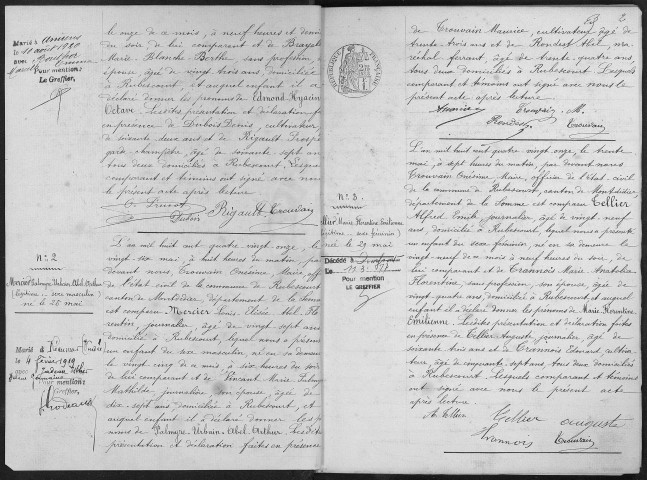 Marié à Amiens
le 11 août 1920
avec
Pour mention
Le Greffier,
le onze de a mois, à neuf heures et demi
du soir de lui comparant et de
Marie Blanche Berthe sans profession,
épouse, âgée de vingt trois ans, domiciliée
à Rubescourt, et auquel enfant il a
déclaré donner les prénoms de Edmond Hyacin
Octave. Lesdites présentation et déclaration
en présence de Dubois Denis, cultivateur
soixante deux ans et de Rigault Prosp
garde champêtre, âgé de soixante sept an
tous deux domiciliés à Rubescourt, Lesque
comparant et témoins ont signé avec nous
le présent acte après lecture
Dubois Rigault Trouvain
N° 2
Mercier Palmyre Urbain Abel Arthur
(légitime, sexe masculin)
né le 26 mai
Marié à
le 4 février 1919
avec
Pour mention
Le Greffier,
L'an mil huit cent quatre vingt onze, le
vingt six mai, à huit heures du matin, par
devant nous, Trouvain Onésime Maire, offi
de l'état civil de la commune de Rubescourt
canton de Montdidier, département de la Somme
est comparu Mercier Louis Elisée Abel Flo
rentin, journalier, âgé de vingt sept ans
domicilié à Rubescourt, lequel nous a présent
un enfant du sexe masculin, né en sa demeure
le vingt cinq de a mois, à six heures du soir
de lui comparant et de Vincant Marie Palmy
Mathilde, journalière, son épouse, âgée de
dix-sept ans domiciliée à Rubescourt, et
auquel enfant il a déclaré donner les pré
noms de Palmyre-Urbain-Abel-Arthur. Lesdites
présentation et déclaration faites en présence
2
RÉPUBLIQUE FRANÇAISE
de Trouvain Maurice, cultivateur âgé de
trente trois ans et de Rondest Abel, ma
réchal ferrant, âgé de trente quatre ans,
tous deux domiciliés à Rubescourt. Lesquels
comparant et témoins ont signé avec nous le
présent acte après lecture
Mercier Trouvain M.
Rondest Trouvain
N° 3
Tellier Marie Florentine Emilienne
(légitime, sexe féminin)
né le 29 mai
Décédée à
Le 11.3.1977
Pour mention
LE GREFFIER
L'an mil huit cent quatre vingt onze, le trente
mai, à sept heures du matin, par devant nous
Trouvain Onésime Maire, officier de l'état-civil
de la commune de Rubescourt, canton de Montdidier,
département de la Somme est comparu Tellier
Alfred Emile, journalier, âgé de vingt neuf
ans, domicilié à Rubescourt, lequel nous a présenté
un enfant du sexe féminin, né en sa demeure le
vingt neuf de a mois, à sept heures du soir, de
lui comparant et de Trannois Marie Anatolie
Florentine, sans profession, son épouse, âgée de
vingt quatre ans, domiciliée à Rubescourt et auquel
enfant il a déclaré donner les prénoms de Marie Florentine
Emilienne. Lesdites présentation et déclaration faites
en présence de Tellier Auguste journalier, âgé de
soixante trois ans et de Trannois Edouard, cultiva-
teur, âgé de cinquante sept ans, tous deux domiciliés
à Rubescourt, lesquels comparant et témoins
ont signé avec nous le présent acte
après lecture
A. Tellier Tellier auguste
Trannois Trouvain